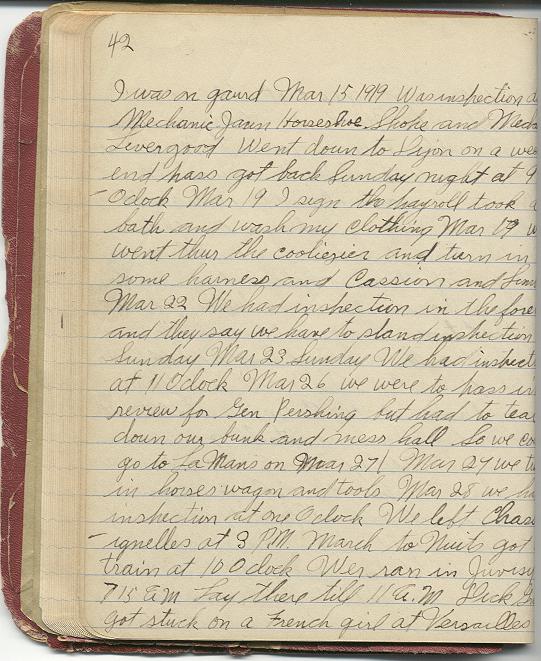 42
I was on gaurd Mar 15 1919 Was inspection
Mechanic Jaun Horseshoe Shope and
Livergood Went down to Dijon on a
end pass got back Sunday night at 9
- Oclock Mar 19 I sign the payroll took
bath and wash my clothing Mar 19
went thur the cootiezier and turn in
some harness and Cassion and
Mar 22 We had inspection in the
and they say we have to stand inspection
Sunday Mar 23 Sunday We had
at 11 Oclock Mar 26 we were to pass in
review for Gen Pershing but had to
down our bunk and mess hall So we
go to La Mans on Mar 27 Mar 27 we
in horses wagon and tools Mar 28 we
inspection at one Oclock We left
- ignelles at 3 P.M. March to Nuits got
train at 10 Oclock Wer ran in
7 15 A.M Lay there till 11 A.M
got stuck on a French girl at Versailles